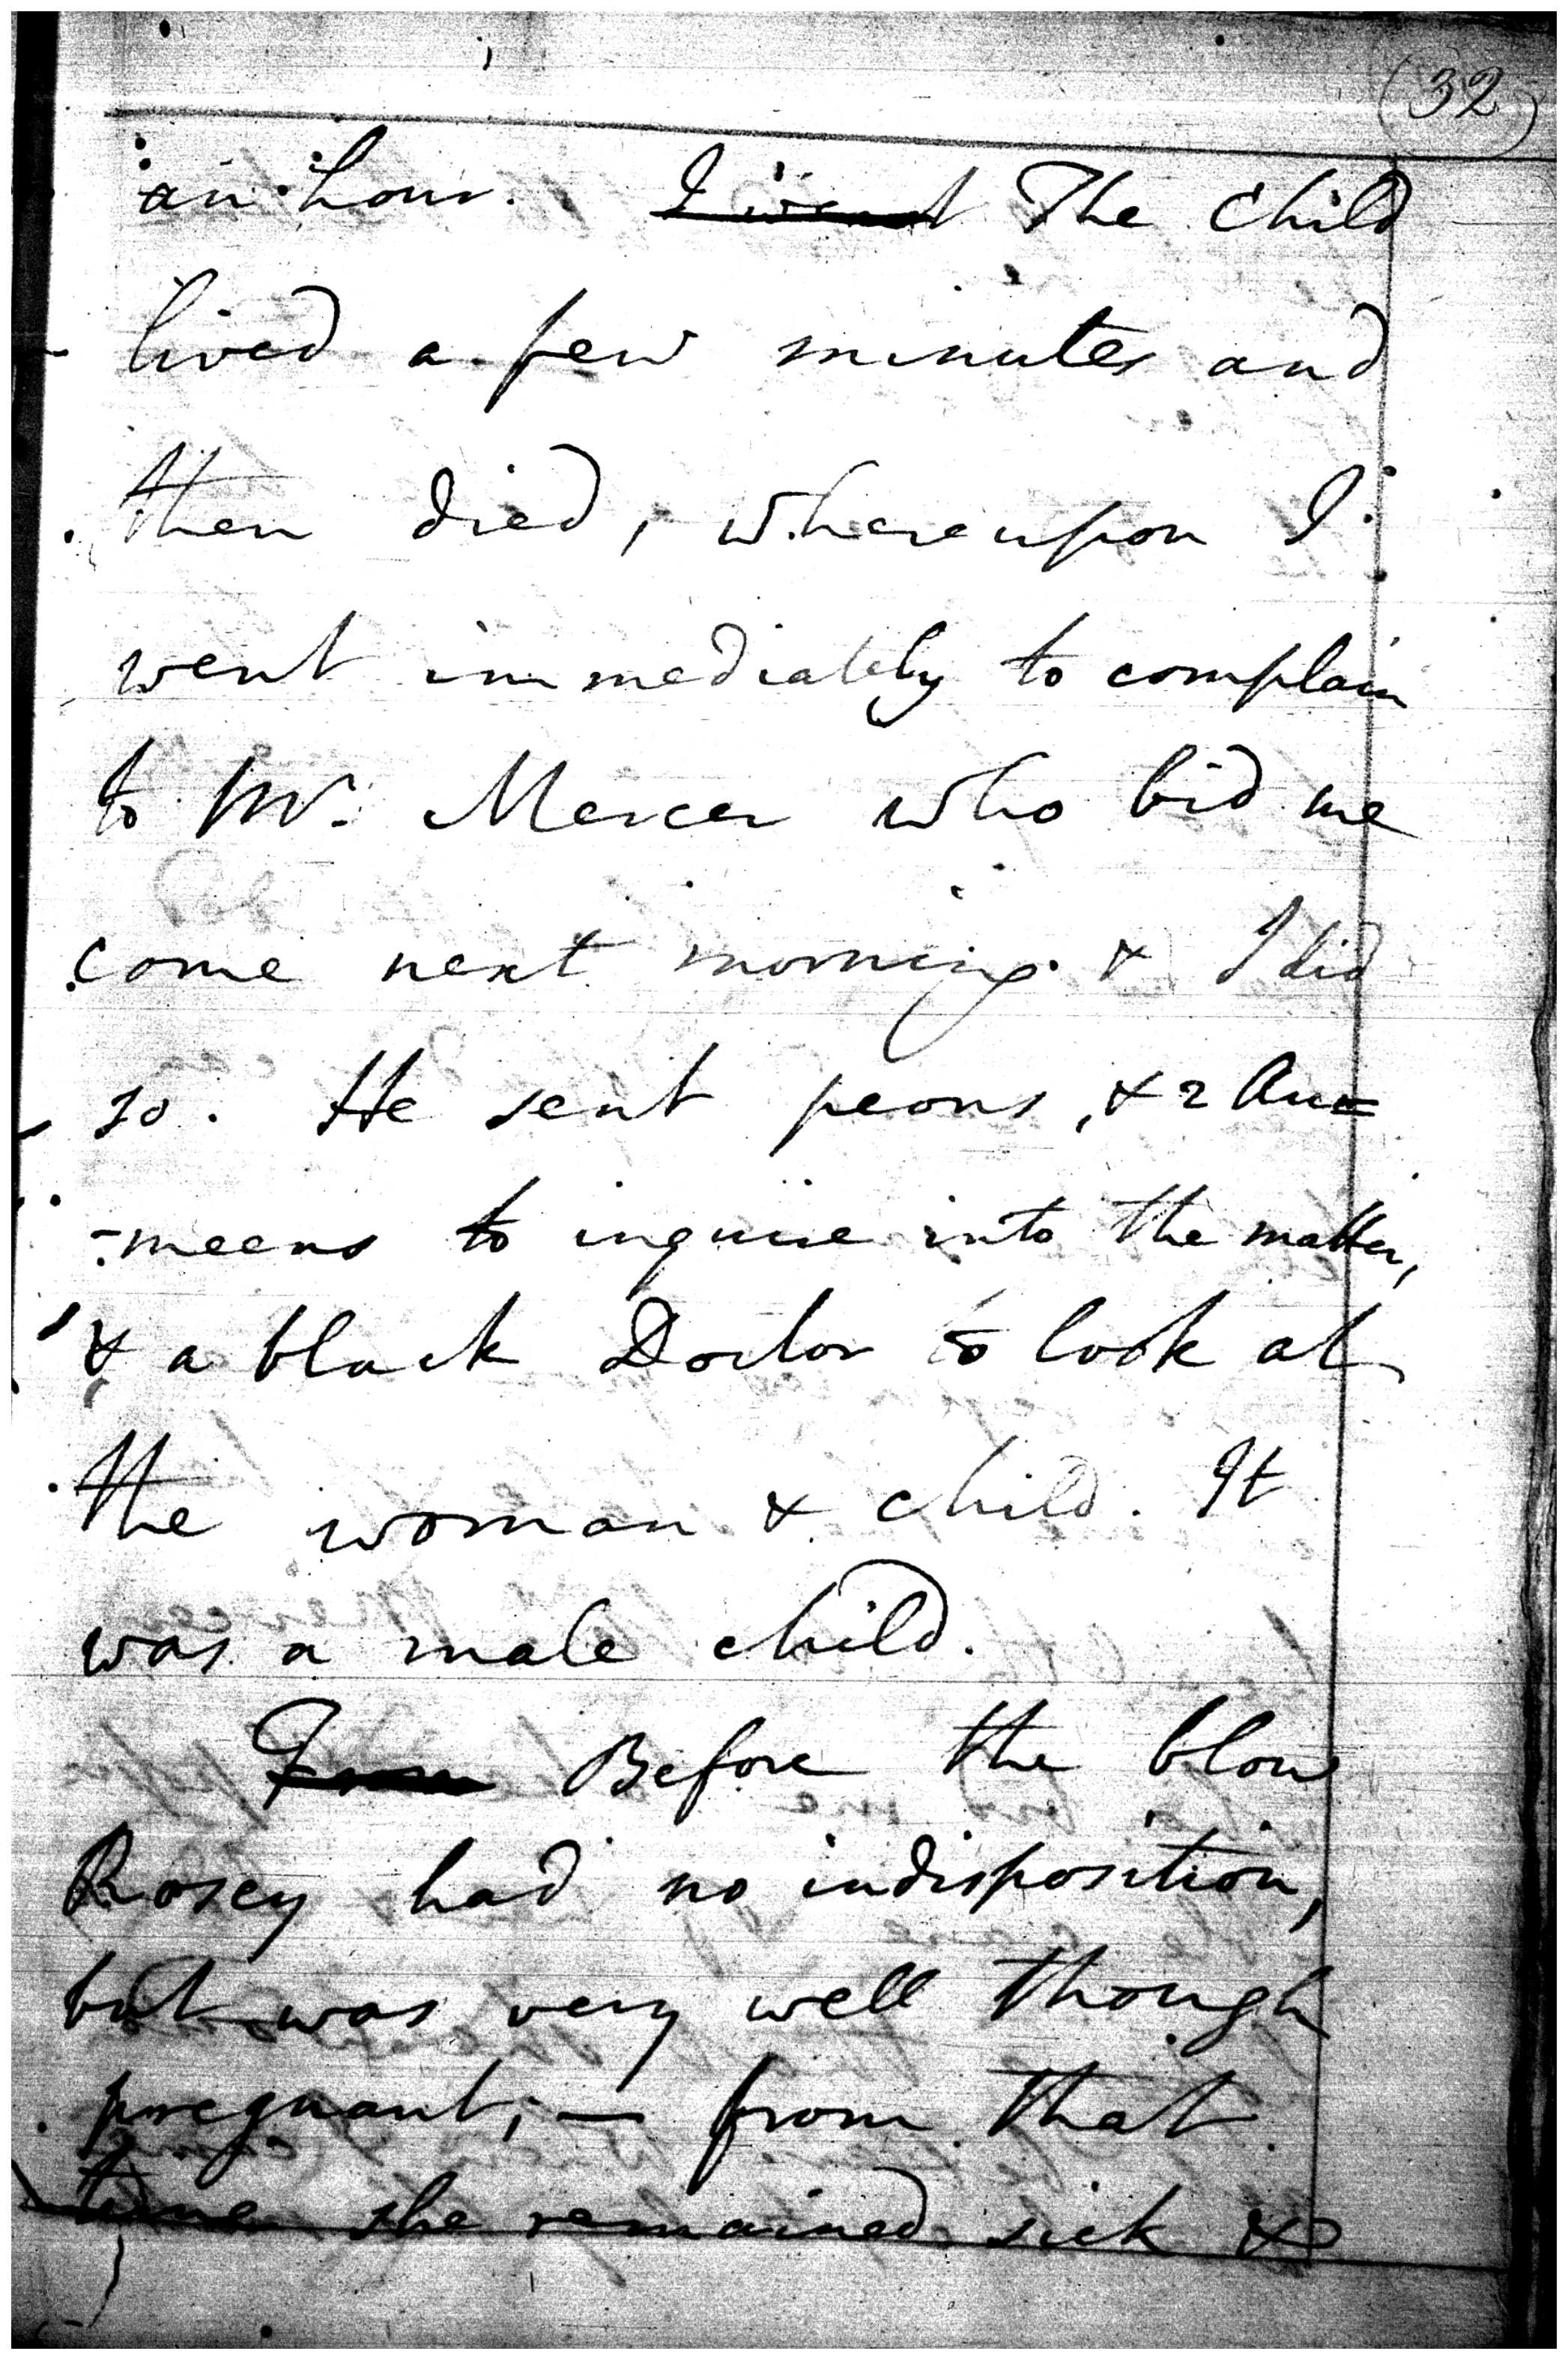 (32)
an hour. I went The child
lived a few minutes and
then died, whereupon I
went immediately to complain
to Mr. Mercer who bid me
come next morning & I did
so. He sent peons, & 2 Au=
-meens to inquire into the matter,
& a black Doctor to look at
the woman & child. It
was a male child.
From Before the blow
Rosey had no indisposition,
but was very well though
pregnant; — from that
time she remained sick &